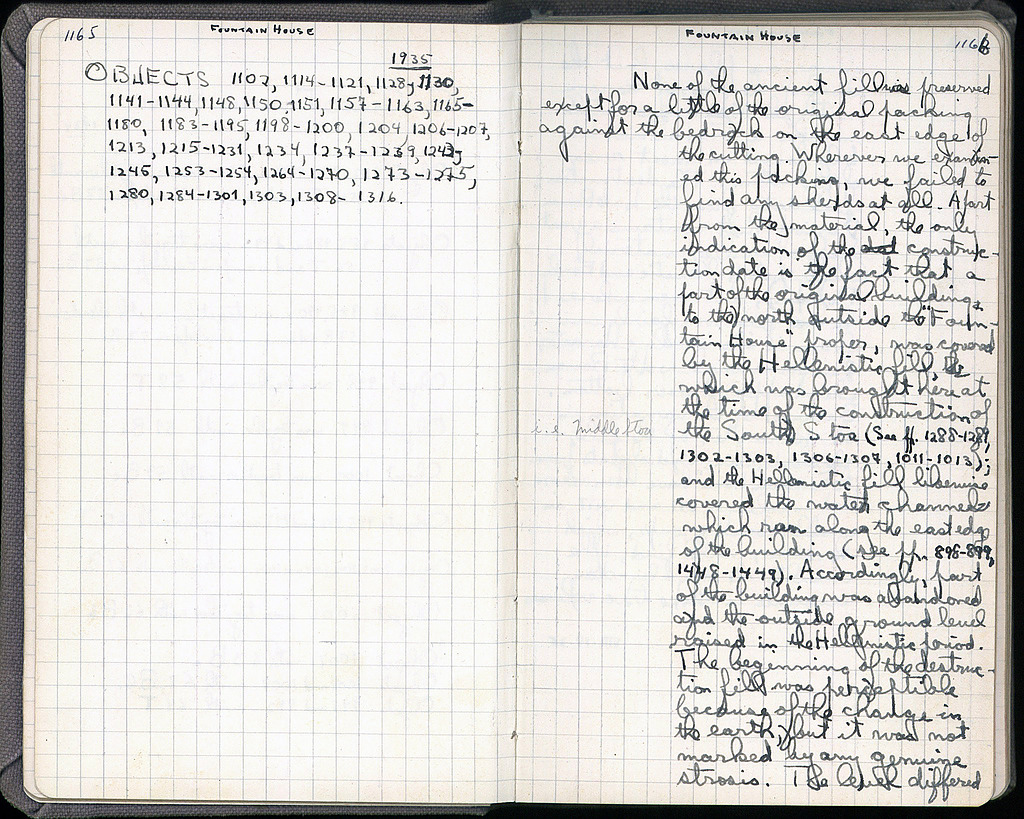 1165
FOUNTAIN HOUSE
1935
OBJECTS 1107, 1114-1121, 1128, 1130,
1141-1144, 1148, 1150, 1151, 1157-1163, 1165-
1180, 1183-1195, 1198-1200, 1204, 1206-1207,
1213, 1215-1231, 1234, 1237-1239, 1242,
1245, 1253-1254, 1264-1270, 1273-1275,
1280, 1284-1301, 1303, 1308-1316.
FOUNTAIN HOUSE
1166
None of the ancient fill was preserved
except for a little of the original packing
against the bedrock on the east edge of
the cutting. Wherever we examin-
ed this packing, we failed to
find any sherds at all. Apart
from the material, the only
indication of the construc-
tion date is the fact that a
part of the original building,
to the north outside the "Foun-
tain House" proper, was covered
by the Hellenistic fill,
which was brought here at
the time of the construction of
i.e. Middle Stoa
the South Stoa (See ff. 1288-1289,
1302-1303, 1306-1307, 1011-1013);
and the Hellenistic fill likewise
covered the water channel
which ran along the east edge
of the building (see pp. 898-899,
1448-1449). Accordingly, part
of the building was abandoned
and the outside ground level
raised in the Hellenistic period.
The beginning of the destruc-
tion fill was perceptible
because of the change in
the earth, but it was not
marked by any genuine
strosis. The level differed